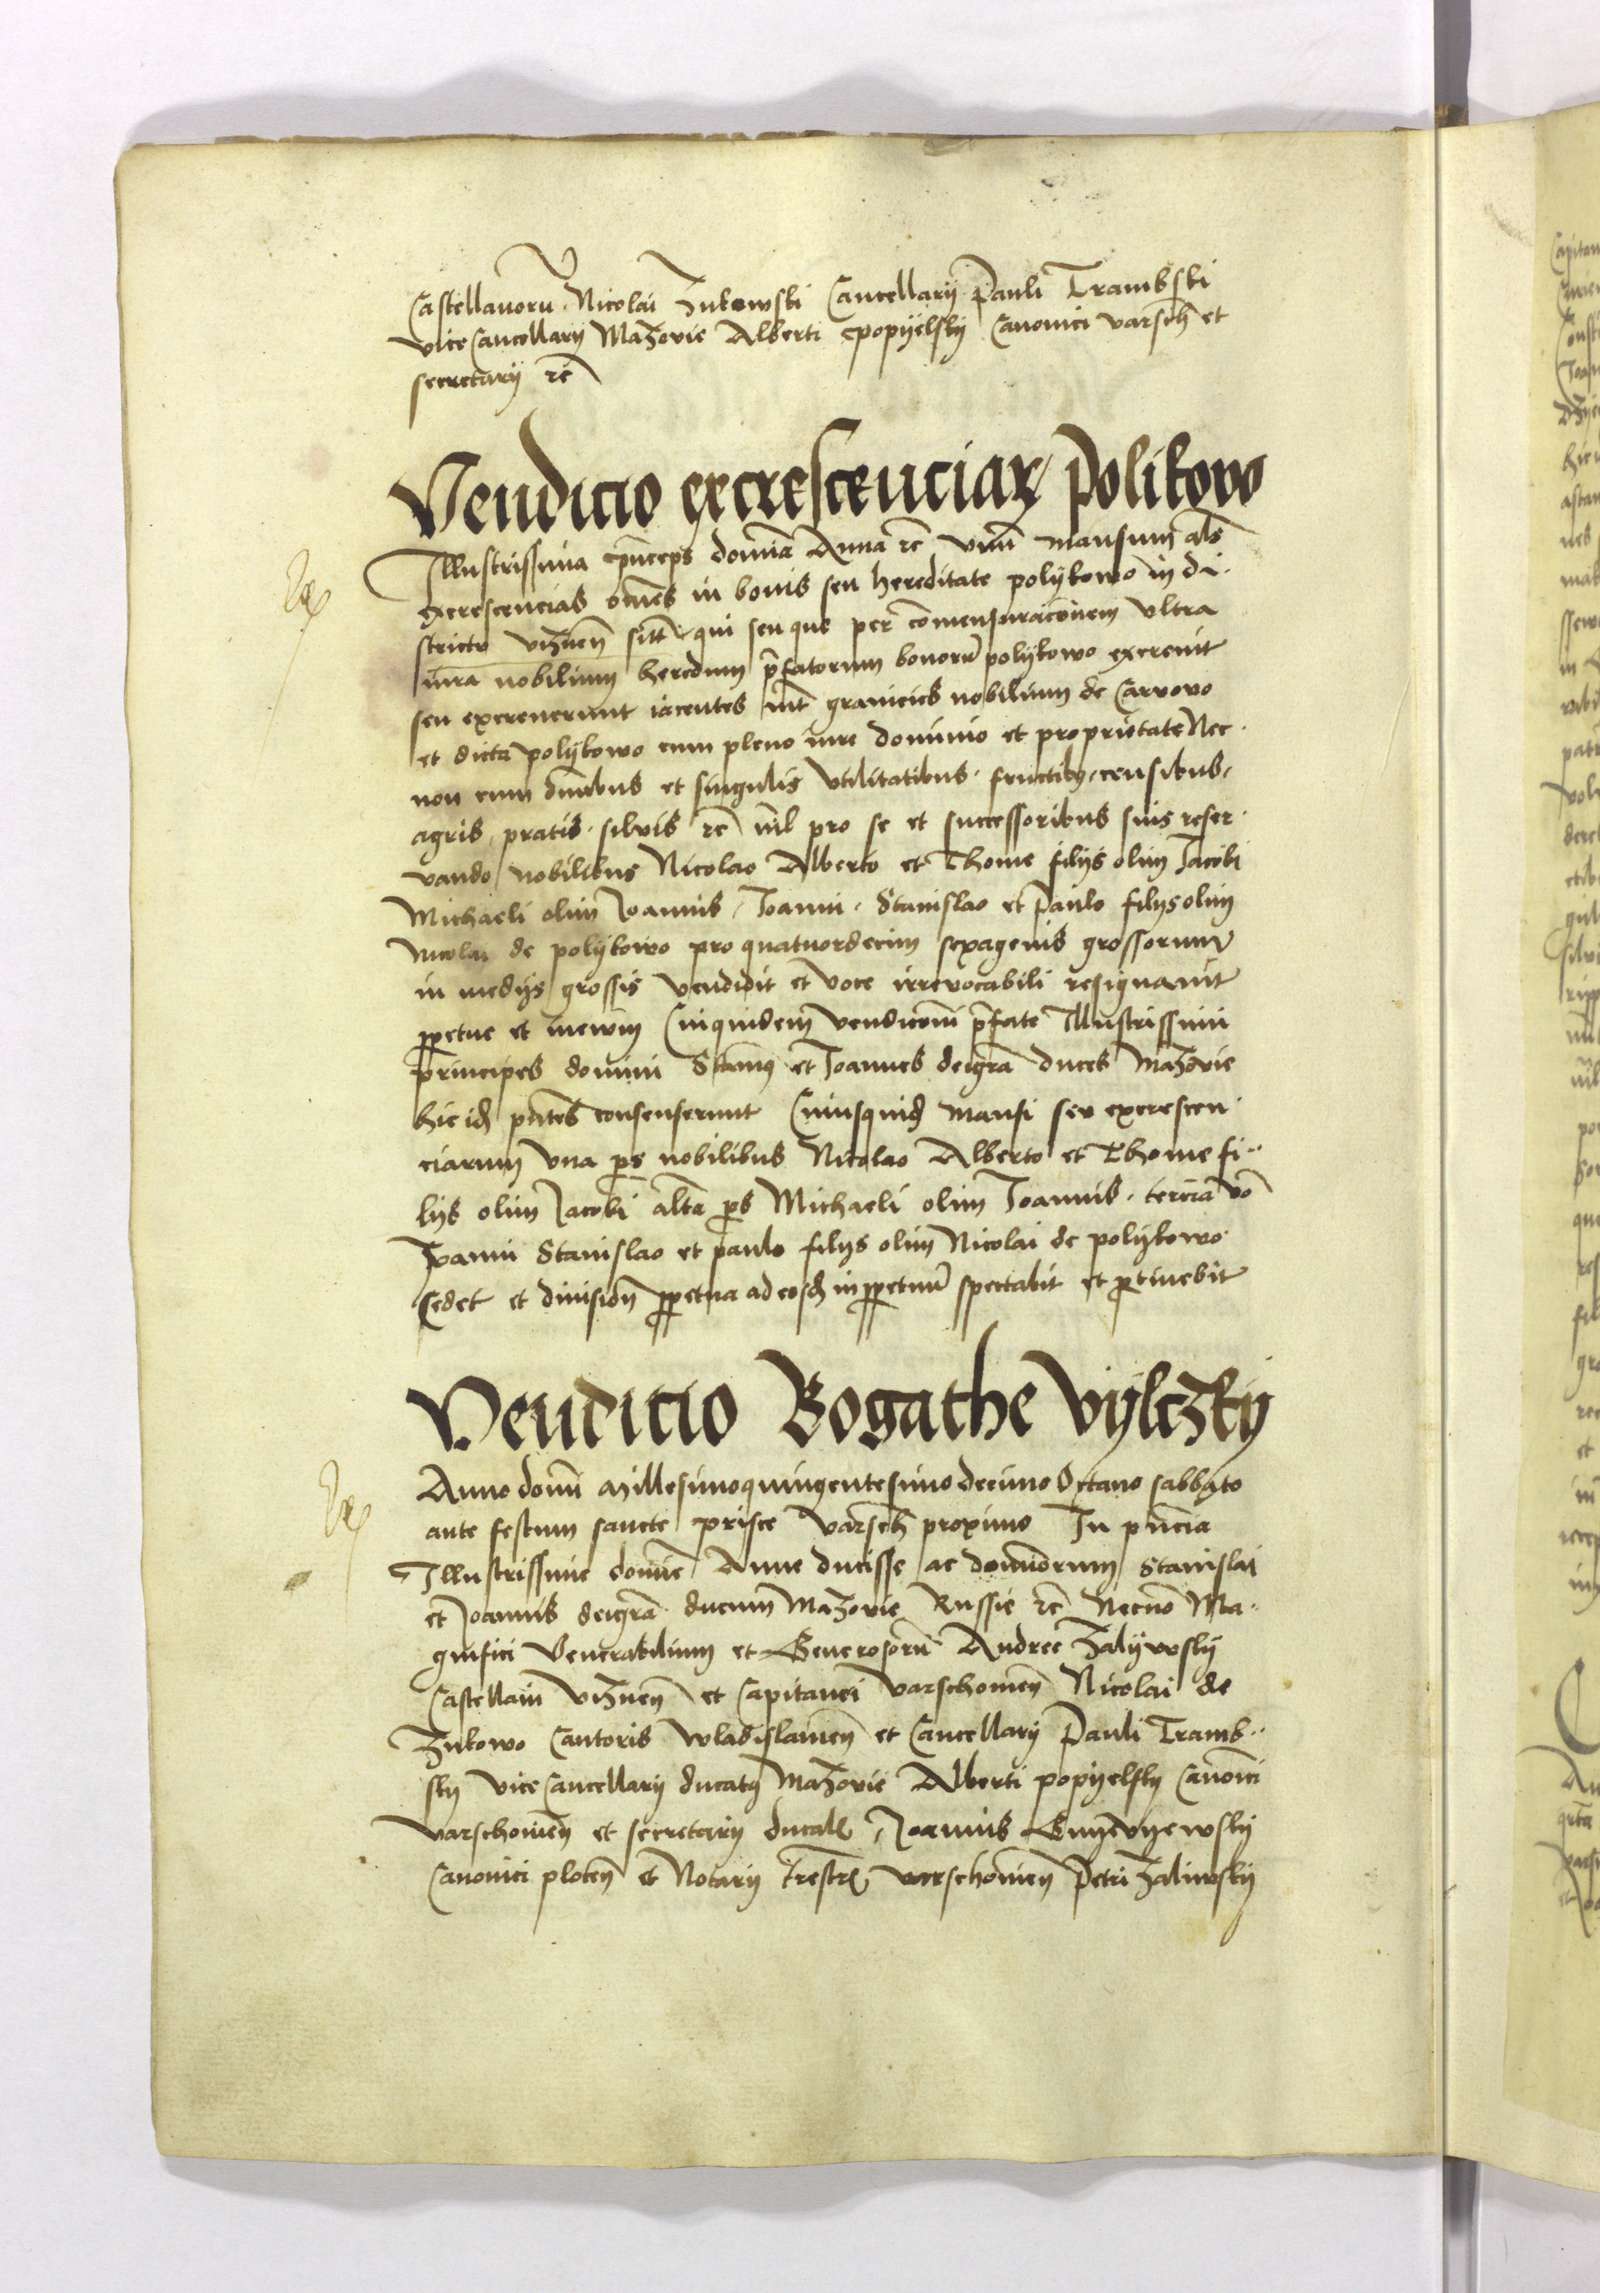 Castellanoru Nicolai Zukowski Cancellarij Pauli Trambski
viceCancellarij Mazovie Alberti popyelsky Canonici varsch et
secretarij rc
Vendicio excrescenciar Polikowo
Illustrissima princeps domina Anna rc vnu mansum als
excrescencias omes in bonis seu hereditate polykowo in di
strictu viznen sitt qui seu que per comensuracionem vltra
iura nobilium heredum prefatorum bonoru polykowo excreuit
seu excreuerunt iacentes int granicies nobilium de Carvovo
et dicta polykowo cum pleno iure dominio et proprietate Nec
non cum omibus et singulis vtilitatibus fructibus censibus
agris pratis siluis rc nil pro se et successoribus suis reser
vando nobilibus Nicolao Alberto et Thome filijs olim Jacobi
Michaeli olim Joannis Joanni Stanislao et Paulo filijs olim
Nicolai de polykowo pro quatuordecim sexagenis grossorum
in medijs grossis vendidit et voce irrevocabili resignauit
ppetue et inewm Cuiquidem vendicioni prefate Illustrissimi
principes domini Stanis et Joannes deigra duces Mazovie
hic id pntes consenserunt Cuiusquid mansi seu excrescen
ciarum vna ps nobilibus Nicolao Alberto et Thome fi
lijs olim Jacobi alta ps Michaeli olim Joannis tercia vo
Joanni Stanislao et paulo filijs olim Nicolai de polykowo
cedet et diuision ppetua ad eosd in ppetuu spectabit et ptinebit
Vendicio Bogathe Vylczky
Anno domi Millesimoquingentesimo decimo Octauo sabbato
ante festum sancte prisce varsch proximo In pncia
Illustrissime domine Anne ducisse ac dominorum Stanislai
et Joannis deigra ducum Mazovie Russie rc Necno Ma
gnifici Venerabilium et Generosoru Andree Zalywsky
Castellani viznen et Capitanei varschouien Nicolai de
Zukowo Cantoris wladislauien et Cancellarij Pauli Tramb
sky viceCancellarij ducatus Mazovie Alberti popyelsky Canonici
varschouien et secretarij ducal Joannis Gnyewyewsky
Canonici plocen et Notarij trestr varschouien Petri Zaliwsky